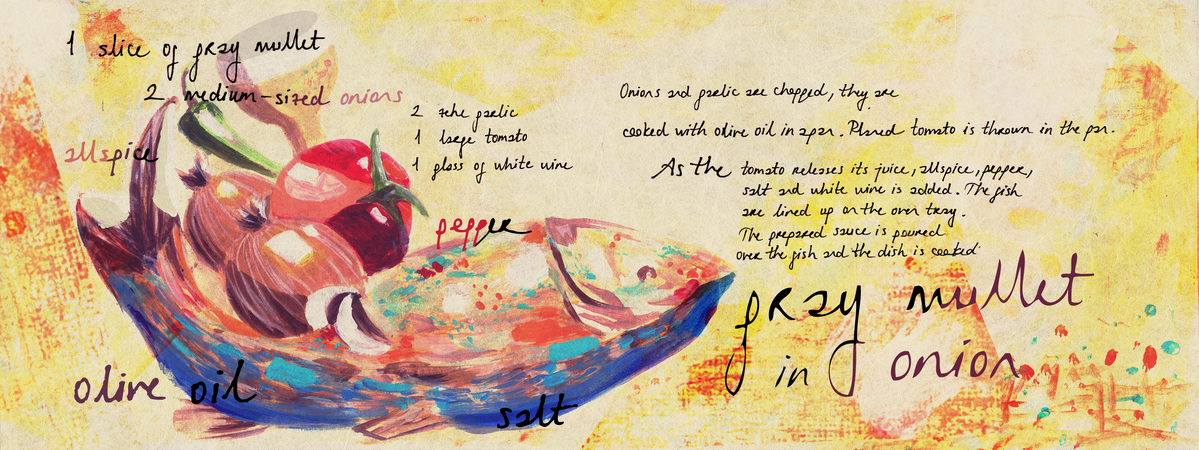 1 slice of gray mullet
2 medium-sized onions
allspice
2 zehe garlic
1 large tomato
1 glass of white wine
pepper
olive oil
salt
Onions and garlic are chopped, they are
cooked with olive oil in a pan. Plured tomato is thrown in the pan.
As the tomato releases its juice, allspice, pepper,
salt and white wine is added. The fish
are lined up on the oven tray.
The prepared sauce is poured
over the fish and the dish is cooked
gray mullet
in onion